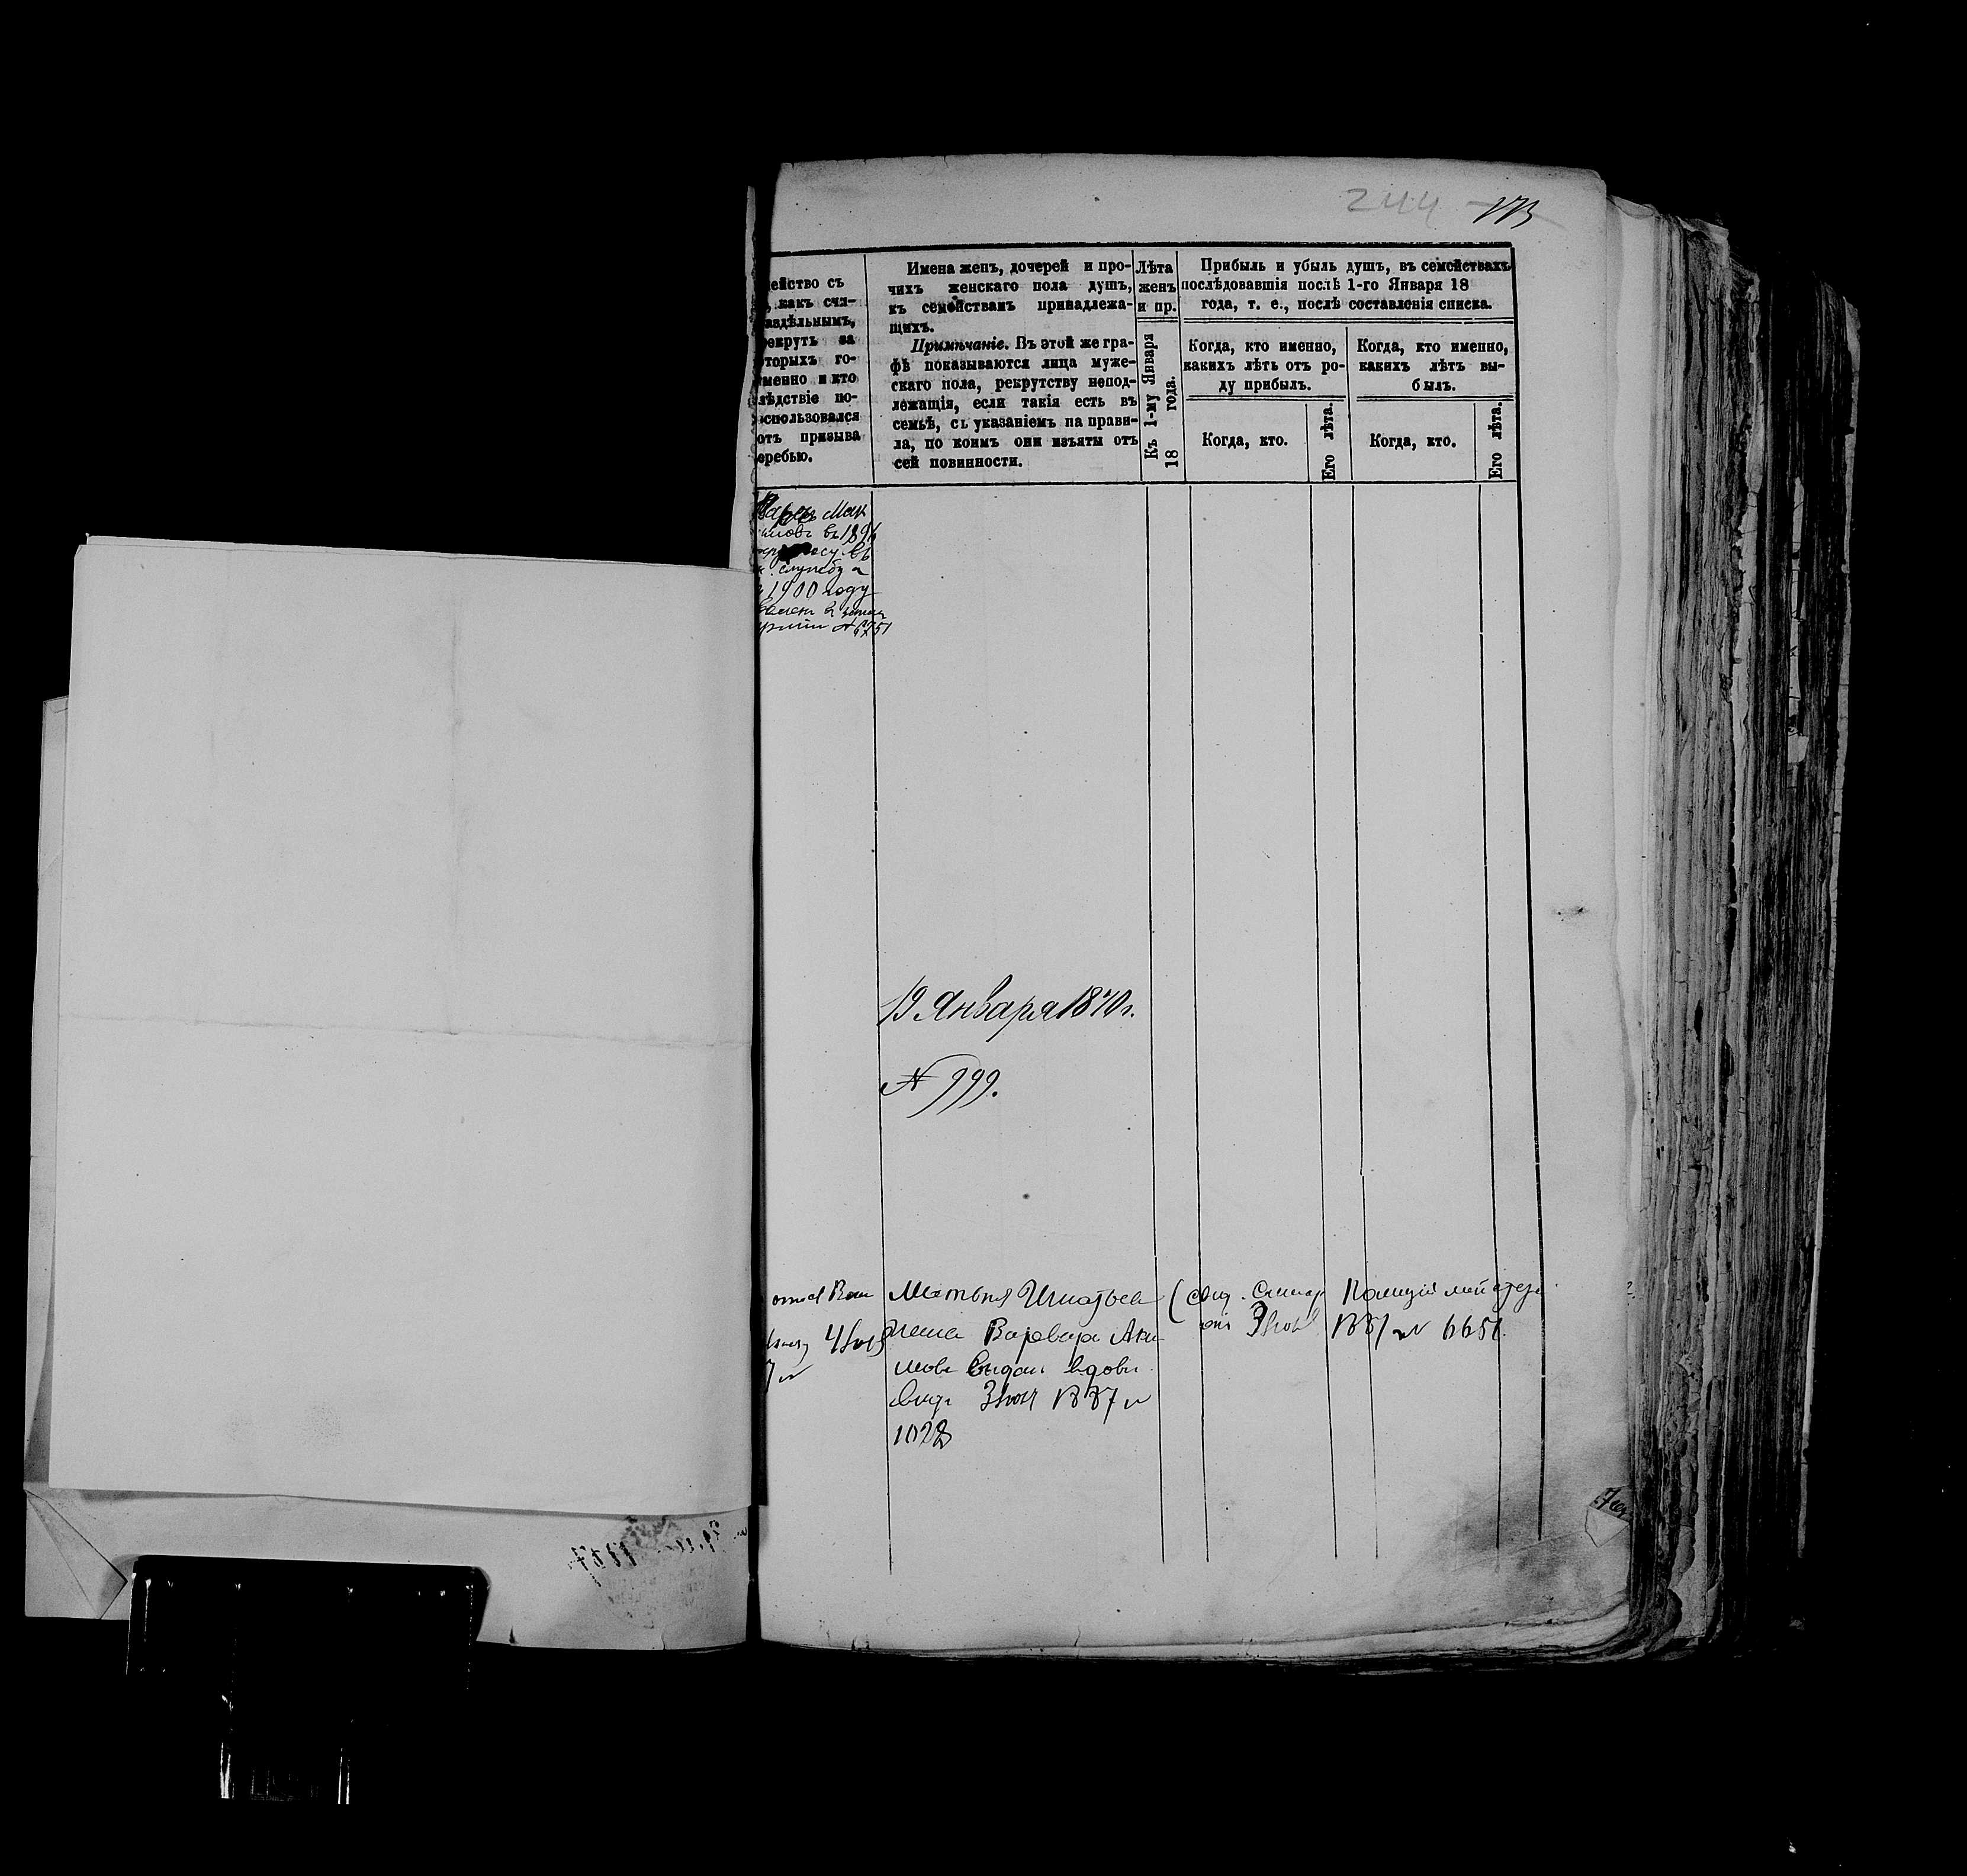 244 173
ейство съ
, какъ счи-
аздѣльнымъ,
рекрутъ за
торыхъ го-
менно и кто
лѣдствіе по-
оспользовался
отъ призыва
еребью.
Имена женъ, дочерей и про-
чихъ женскаго пола душъ,
къ семействамъ принадлежа-
щихъ.
Примѣчаніе. Въ этой же гра-
фѣ показываются лица муже-
скаго пола, рекрутству непод-
лежащія, если такія есть въ
семьѣ, съ указаніемъ на прави-
ла, по коимъ они изъяты отъ
сей повинности.
Лѣта
женъ
и пр.
Къ 1-му Января
18 года.
Прибыль и убыль душъ, въ семействахъ
послѣдовавшія послѣ 1-го Января 18
года, т. е., послѣ составленія списка.
Когда, кто именно,
какихъ лѣтъ отъ ро-
ду прибылъ.
Когда, кто.
Его лѣта.
Когда, кто именно,
какихъ лѣтъ вы-
былъ.
Когда, кто.
Его лѣта.
Мак
имовъ въ 1896
въ
службу
1900 году
№ 6751
19 Января 1870 г.
№ 999.
Матвѣя Игнатьева
жена Варвара Аки-
мова выдан вдовы
видъ 3 Іюня 1887 №
1028
Полиціймейстера
1887 № 6651.